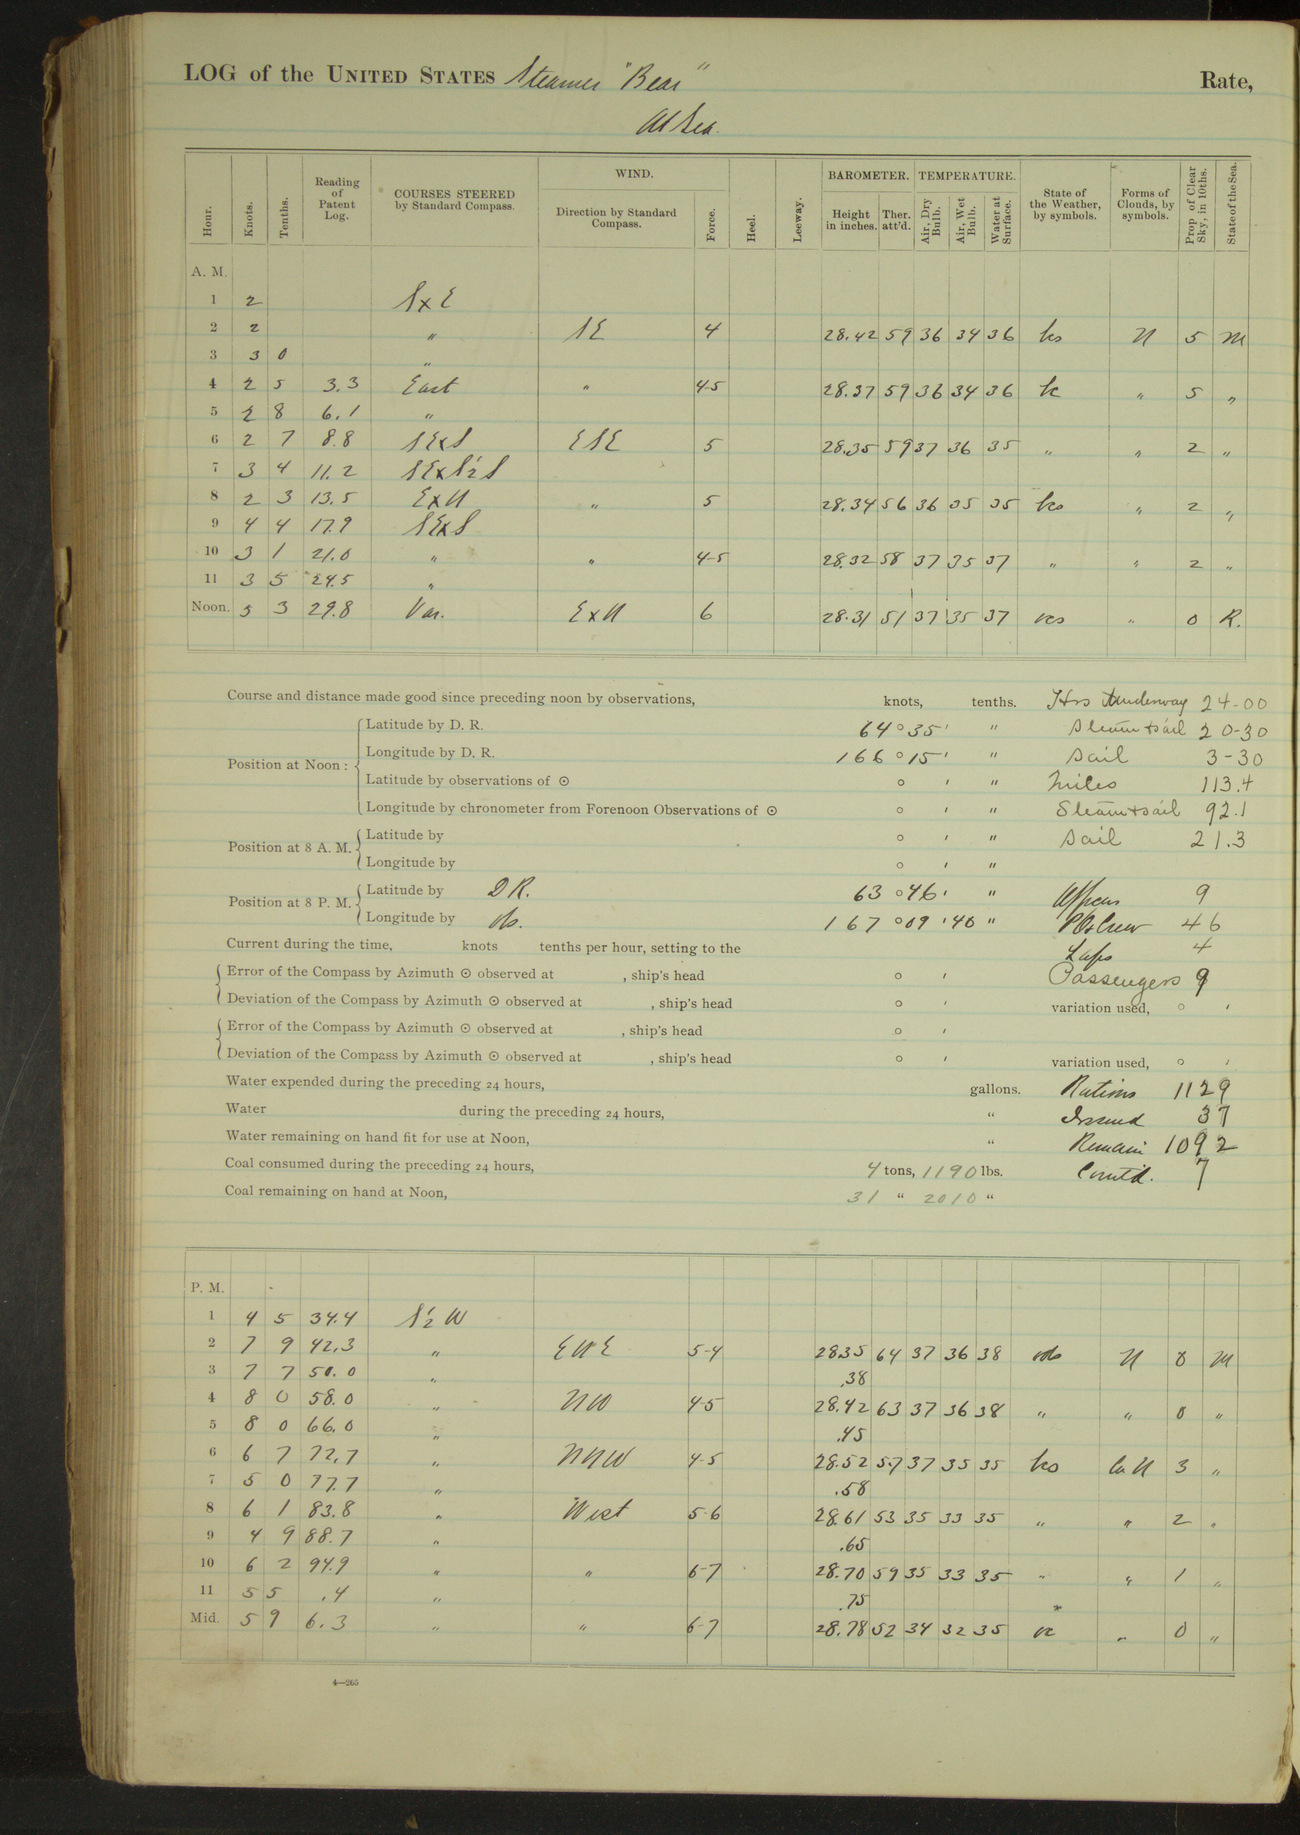 LOG of the UNITED STATES Steamer "Bear" Rate,
At Sea.
Hour. Knots. Tenths. Reading of Patent Log. COURSES STEERED by Standard Compass. WIND. Direction by Standard Compass. Force. Heel. Leeway. BAROMETER. Height in inches. Ther. att'd. TEMPERATURE. Air, Dry Bulb. Air, Wet Bulb. Water at Surface. State of the Weather, by symbols. Forms of Clouds, by symbols. Prop of Clear Sky, in 10ths. State of the Sea.
A. M.
1 2 SxE
2 2 " SE 4 28.42 59 36 34 36 N 5 M
3 3 0 "
4 2 5 3.3 East " 4-5 28.37 59 36 34 36 " 5 "
5 2 8 6.1 "
6 2 7 8.8 SExS ESE 5 28.35 59 37 36 35 " " 2 "
7 3 4 11.2 SExS½S
8 2 3 13.5 ExN " 5 28.34 56 36 35 35 " 2 "
9 4 4 17.9 SExS
10 3 1 21.0 " " 4-5 28.32 58 37 35 37 " " 2 "
11 3 5 24.5 "
Noon. 5 3 29.8 Var. ExN 6 28.31 51 37 35 37 " 0 R.
Course and distance made good since preceding noon by observations, knots, tenths. Hrs underway 24-00
Latitude by D. R. 64 ° 35 ' " Steam & sail 20-30
Position at Noon : Longitude by D. R. 166 ° 15 ' " Sail 3-30
Latitude by observations of ☉ ° ' " Miles 113.4
Longitude by chronometer from Forenoon Observations of ☉ ° ' " Steam & sail 92.1
Position at 8 A. M. Latitude by ° ' " Sail 21.3
Longitude by ° ' "
Position at 8 P. M. Latitude by DR. 63 ° 46 ' " Officers 9
Longitude by 167 ° 09 ' 40 " 46
Current during the time, knots tenths per hour, setting to the 4
Error of the Compass by Azimuth ☉ observed at , ship's head ° ' Passengers 9
Deviation of the Compass by Azimuth ☉ observed at , ship's head ° ' variation used, ° '
Error of the Compass by Azimuth ☉ observed at , ship's head ° '
Deviation of the Compass by Azimuth ☉ observed at , ship's head ° ' variation used, ° '
Water expended during the preceding 24 hours, gallons. Rations 1129
Water during the preceding 24 hours, " Issued 37
Water remaining on hand fit for use at Noon, " Remain 1092
Coal consumed during the preceding 24 hours, 4 tons, 1190 lbs. 7
Coal remaining on hand at Noon, 31 " 2010 "
P. M.
1 4 5 34.4 S½W
2 7 9 42.3 " ENE 5-4 28.35 64 37 36 38 N 0 M
3 7 7 50.0 " .38
4 8 0 58.0 " NW 4-5 28.42 63 37 36 38 " " 0 "
5 8 0 66.0 " .45
6 6 7 72.7 " NNW 4-5 28.52 57 37 35 35 3 "
7 5 0 77.7 " .58
8 6 1 83.8 " West 5-6 28.61 53 35 33 35 " " 2 "
9 4 9 88.7 " .65
10 6 2 94.9 " " 6-7 28.70 59 35 33 35 " " 1 "
11 5 5 .4 " .75
Mid. 5 9 6.3 " " 6-7 28.78 52 34 32 35 " 0 "
4—265